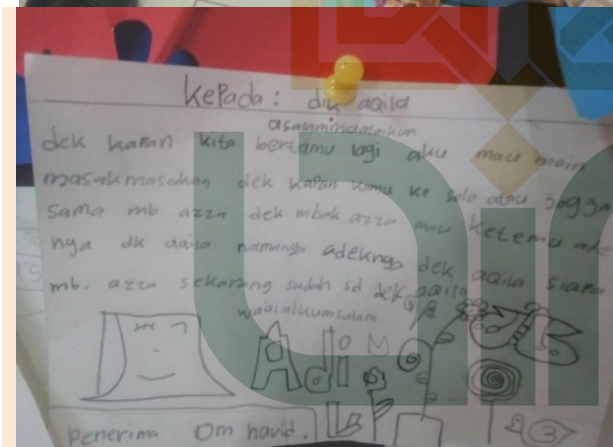 kepada : dik aqila
asaumualaikum
dek kapan kita bertamu lagi aku mau main
masak masakan dek kapan kamu ke solo atau Jogga
sama mb azza dek mbak azza mau ketemu ade
nga dk aqila namanya adeknga dek aqila siapa
mb. azza sekarang sudah sd dek aqila
waalaikumsalam.
Adi
penerima Om havid.
3